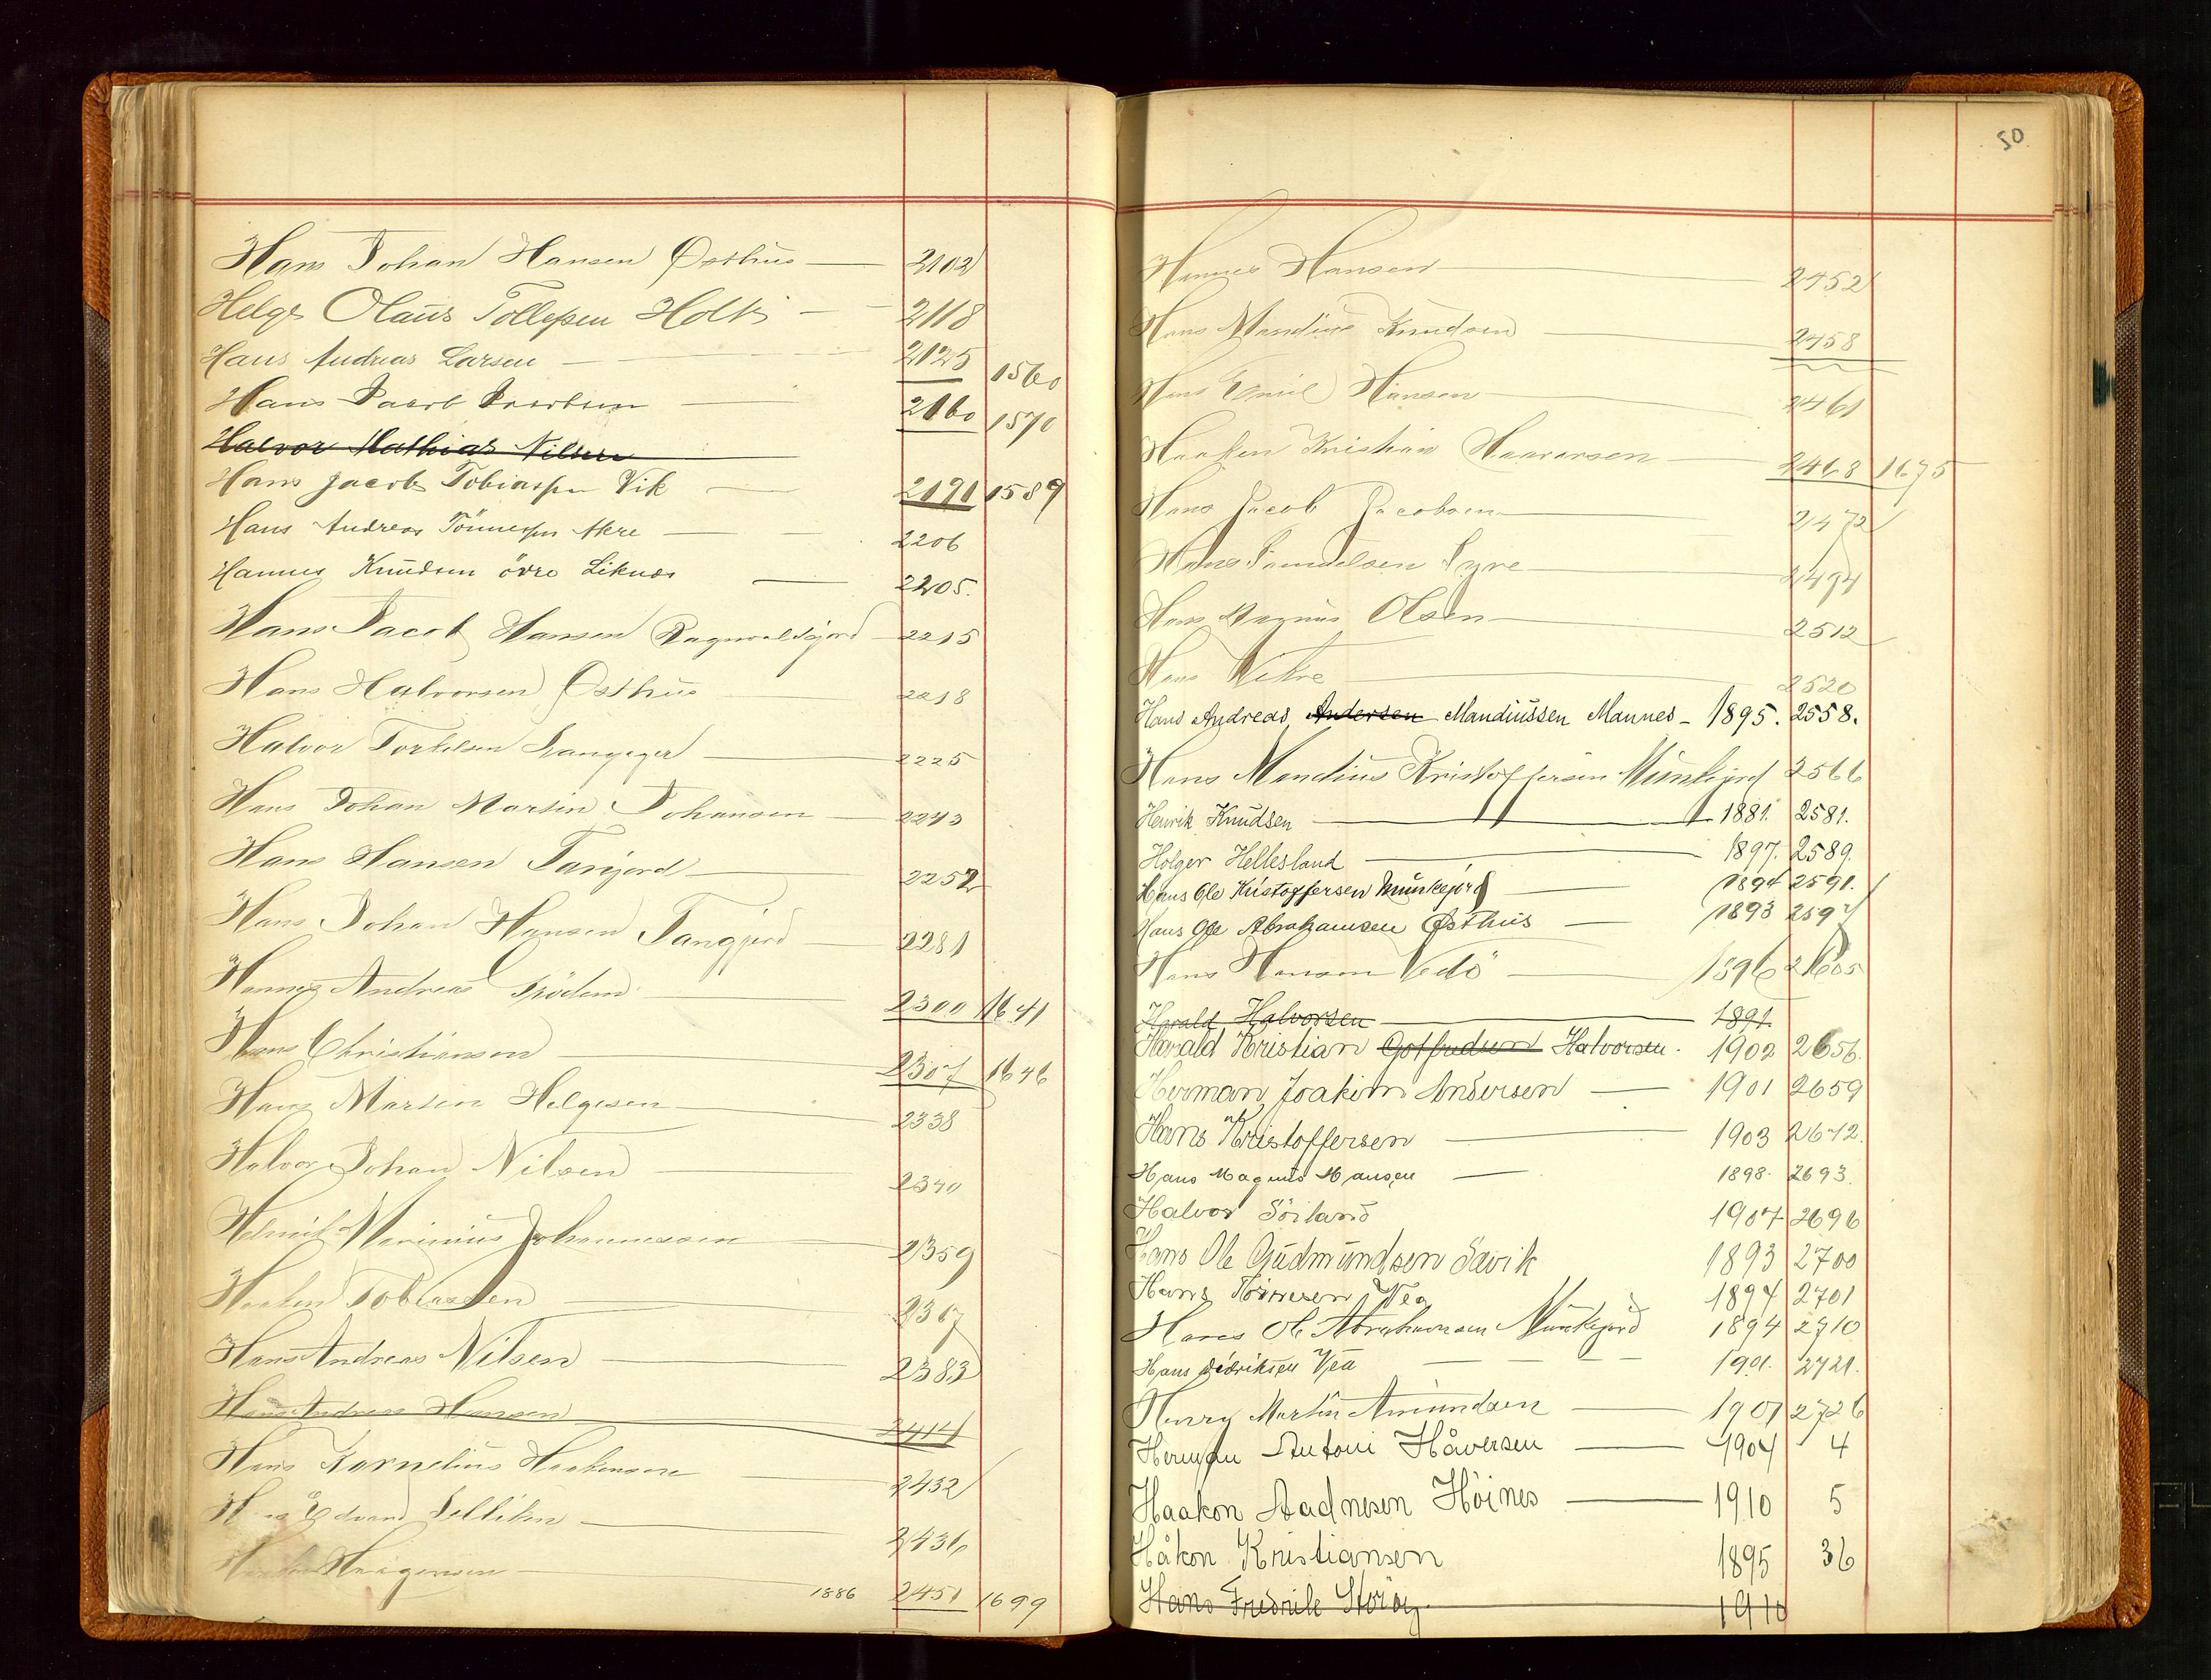 Hans Johan Hansen Østhus — 2102
Helge Olaus Tollefsen Holk — 2118
Hans Andreas Larsen — 2125 1560
Hans Jacob Jacobsen — 2160 1570
Halvor Mathias Nilsen —
Hans Jacob Tobiassen Vik — 2191 1589
Hans Andreas Tönnessen Akre — 2206
Hannes Knudsen övre Liknes — 2205.
Hans Jacob Hansen — 2215
Hans Halvorsen Østhus — 2218
Halvor Torkelsen — 2225
Hans Johan Martin Johansen — 2243
Hans Hansen Tangjerd — 2252
Hans Johan Hansen Tangjerd — 2281
Hannes Andreas Ködem — 2300 1641
Hans Christiansen — 2307 1646
Hans Martin Helgesen — 2338
Halvor Johan Nilsen — 2340
Helmik Marinius Johannessen — 2359
Haaken Tobiassen — 2367
Hans Andreas Nilsen — 2383
Hans Andreas Hansen — 2414
Hans Kornelius Haakensen — 2432
Edvard — 2436
— 1886 2451 1699
50
Hannes Hansen — 2452
Hans Mandius Knudsen — 2458
Hans Emil Hansen — 2461
Haaken Kristian Haavarsen — 2468 1675
Hans Jacob Jacobsen — 2472
Hans Samuelsen Syre — 2494
Hans Magnus Olsen — 2512
Hans Vikre — 2520
Hans Andreas Andersen Mandiussen Mannes – 1895. 2558.
Hans Mandius Kristoffersen Munkejord 2566
Henrik Knudsen — 1881. 2581.
Holger Hellesland — 1897. 2589.
Hans Ole Kristoffersen Munkejord — 1894 2591.
Hans Ole Abrahamsen Østhus — 1893 2597
Hans Hansen Vedö — 1896 2605
Harald Halvorsen — 1891.
Harald Kristian Gotfredsen Halvorsen. 1902 2656.
Herman Joakim Andersen — 1901 2659
Hans Kristoffersen — 1903 2672.
Hans Magnus Hansen — 1898. 2693.
Halvor Sörland 1907 2696
Hans Ole Gudmundsen Sævik 1893 2700
Hans Tönnesen Vea 1894 2701
Hans Ol. Abrahamsen Munkejord 1894 2710
Hans Didriksen Vea — 1901. 2721.
Henry Martin Amundsen — 1901 2726
Herman Antoni Håversen — 1904 4
Haakon Aadnesen Höines — 1910 5
Håkon Kristiansen 1895 36
Hans Fredrik Storöy. 1910